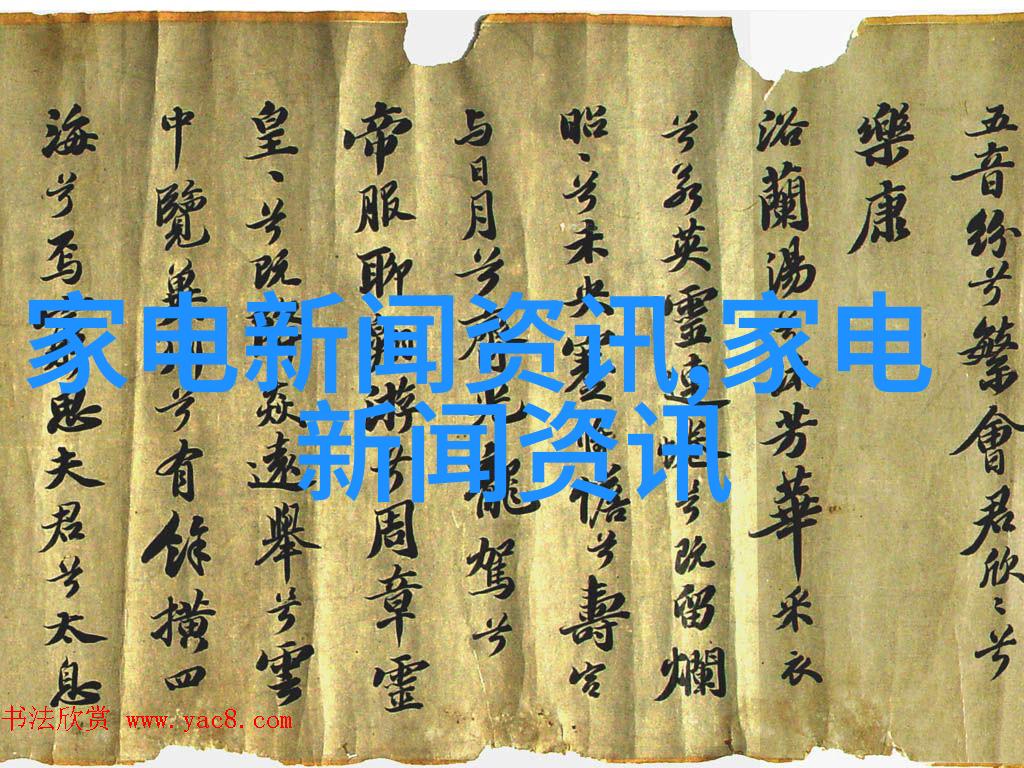 五音紛兮繁會君欣〻兮
樂康
浴蘭湯兮沐芳華采衣
兮若英靈連蜷兮既留爛
昭〻兮未央蹇將憺兮壽宮
与日月兮齊光龍駕兮
帝服聊翱游兮周章靈
皇〻兮既降猋遠舉兮雲
中覽冀州兮有餘橫四
海兮焉窮思夫君兮太息
家电新闻资讯,家电
新闻资讯
书法欣赏 www.yac8.com